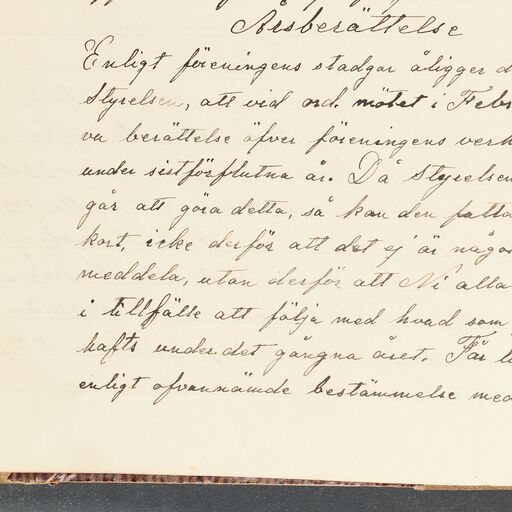 Årsberättelse
Enligt föreningens stadgar åligger d
Styrelsen, att vid ord. mötet i Febr
va berättelse öfver föreningens verk
under sistförflutna år. Då Styrelsen
går att göra detta, så kan den fatta
kort, icke derför att det ej är någo
meddela, utan derför att Ni alla
i tillfälle att följa med hvad som
hafts under det gångna året. Får
enligt ofvannämde bestämmelse med